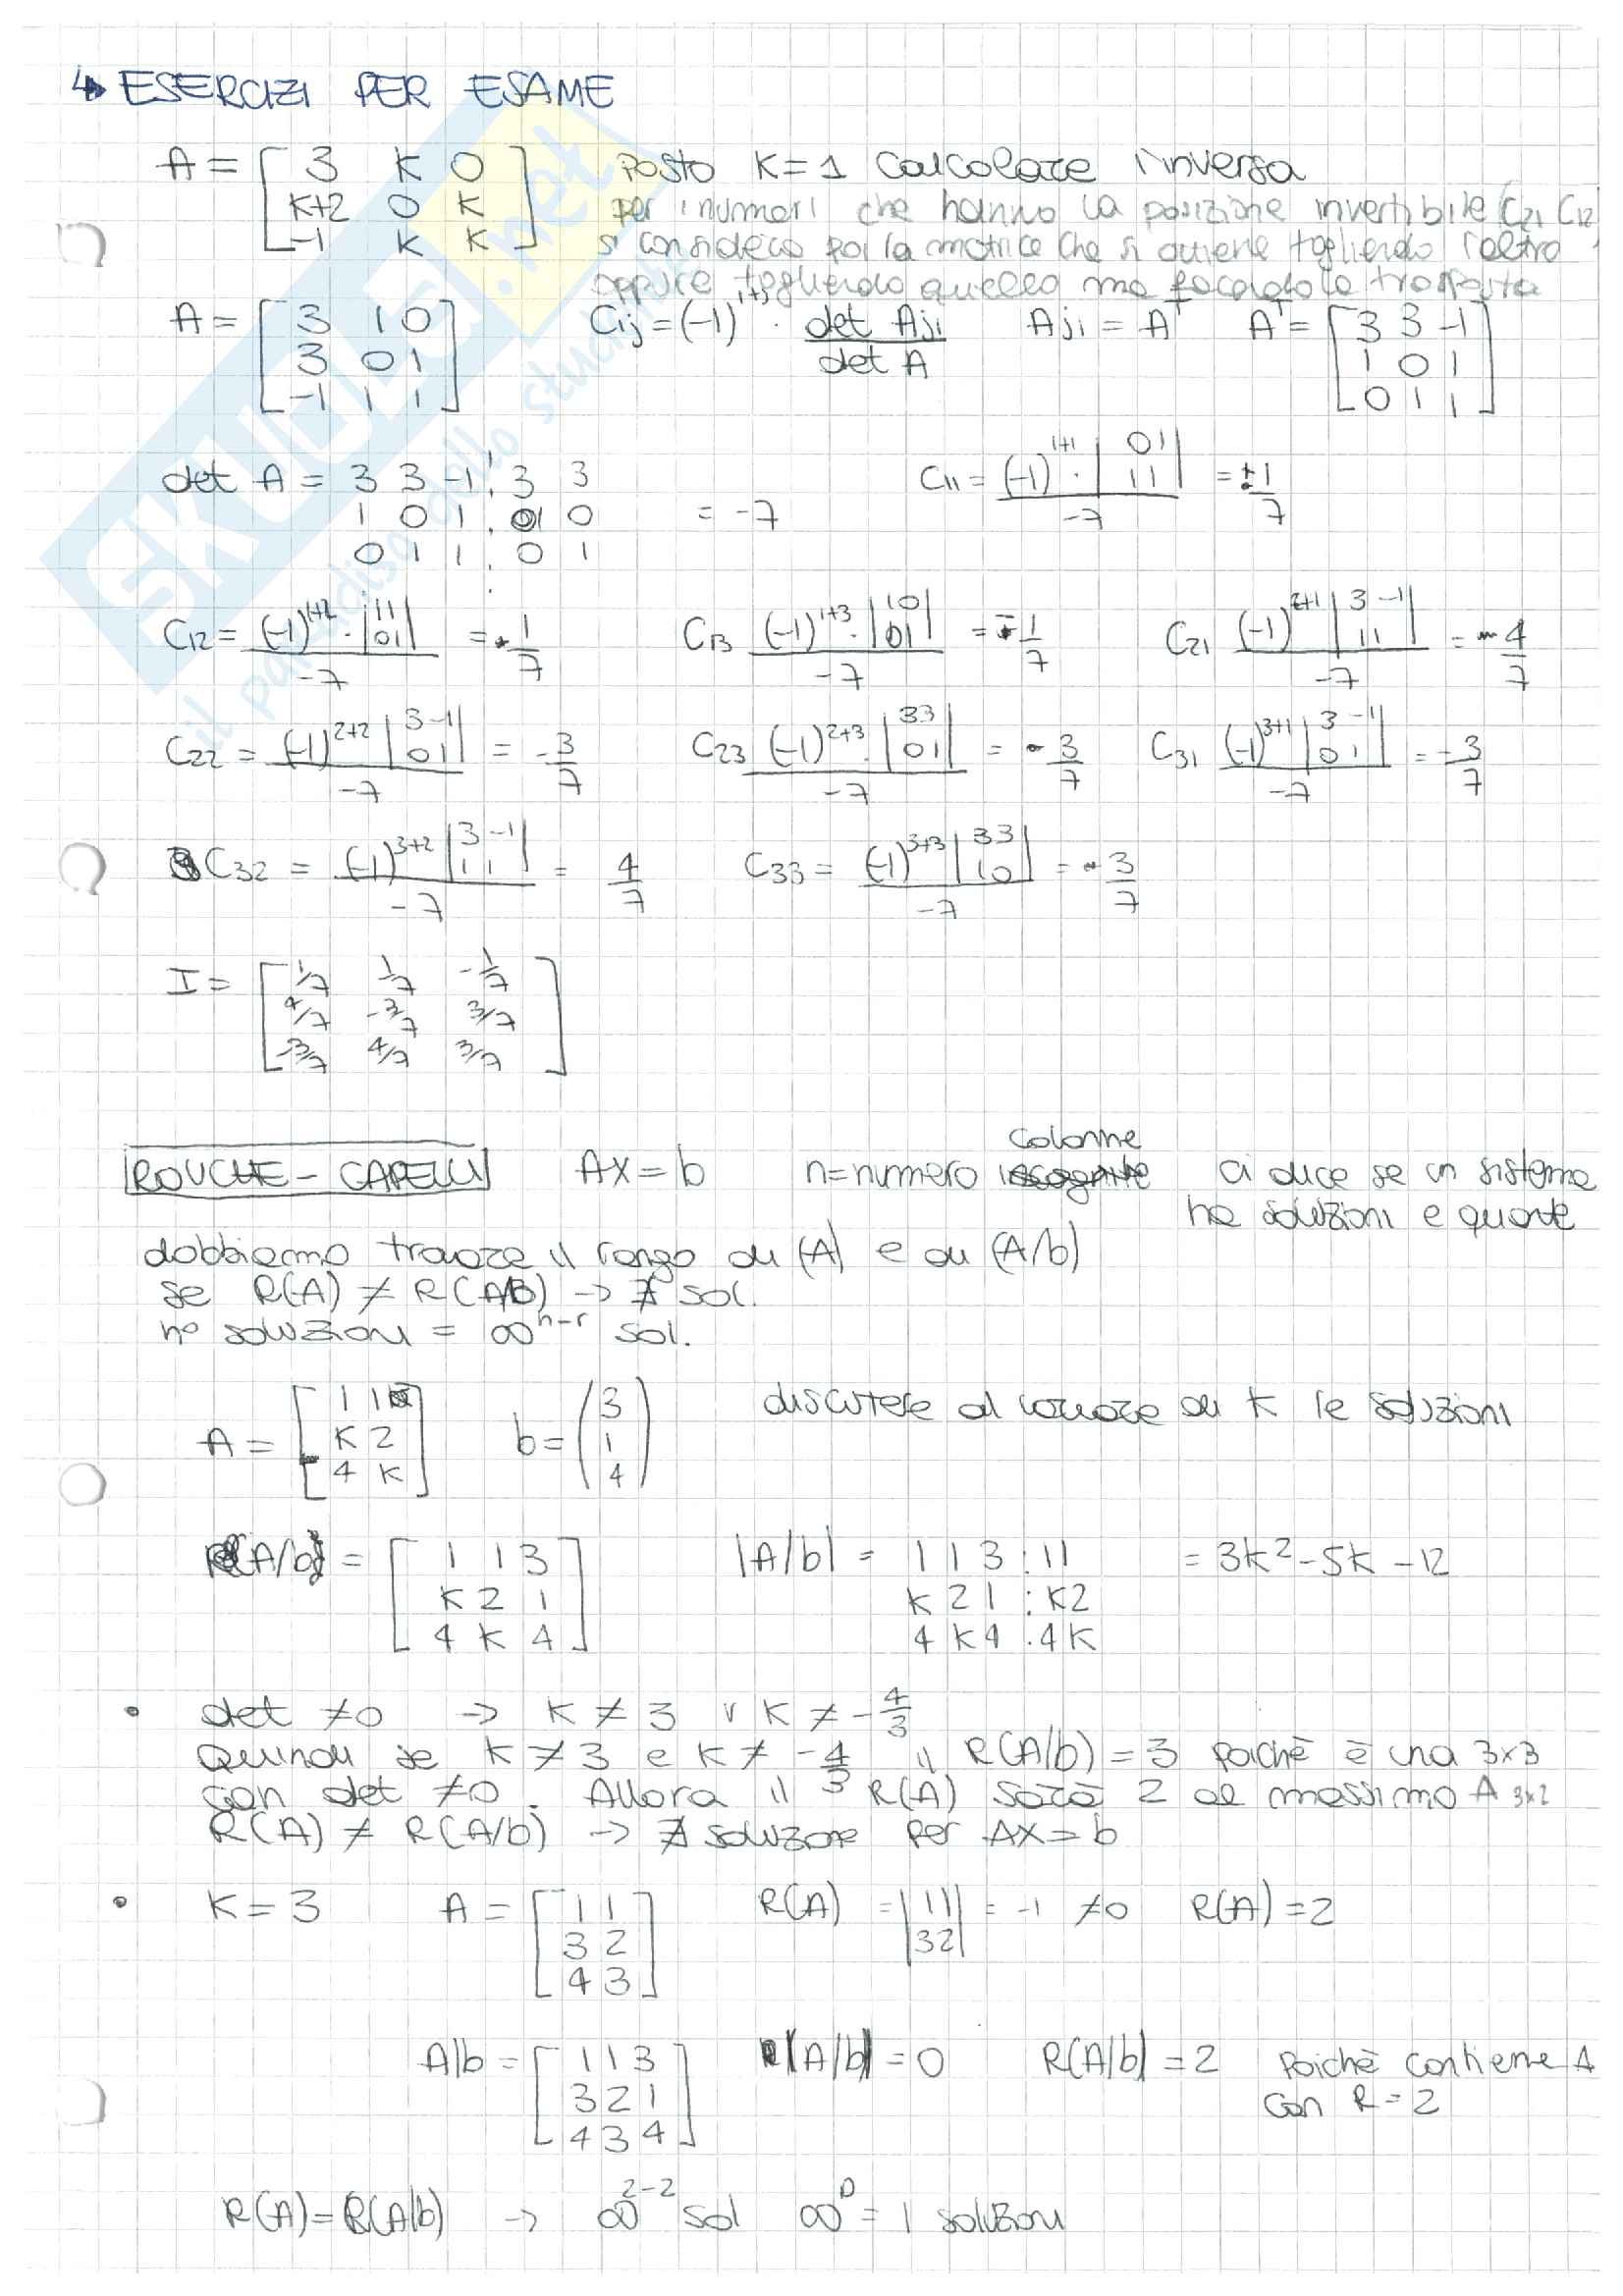 ↳ ESERCIZI PER ESAME
A = [ 3 K 0 ] Posto K = 1 Calcolare l'inversa
[ K+2 0 K ] per i numeri che hanno la posizione invertibile (C21 C12)
[ -1 K K ] si considera poi la matrice che si ottiene togliendo l'altro
oppure togliendo quello ma facendo la trasposta
A = [ 3 1 0 ] Cij = (-1)^i+j · det Aji / det A Aji = A^T A^T = [ 3 3 -1 ]
[ 3 0 1 ] [ 1 0 1 ]
[ -1 1 1 ] [ 0 1 1 ]
det A = 3 3 -1 ⋮ 3 3 C11 = (-1)^1+1 · | 0 1 | / -7 = 1/7
1 0 1 ⋮ 1 0 = -7 | 1 1 |
0 1 1 ⋮ 0 1
C12 = (-1)^1+2 · | 1 1 | / -7 = 1/7 C13 (-1)^1+3 · | 1 0 | / -7 = -1/7 C21 (-1)^2+1 | 3 -1 | / -7 = 4/7
| 0 1 | | 0 1 | | 1 1 |
C22 = (-1)^2+2 | 3 -1 | / -7 = -3/7 C23 (-1)^2+3 · | 3 3 | / -7 = 3/7 C31 (-1)^3+1 | 3 -1 | / -7 = -3/7
| 0 1 | | 0 1 | | 0 1 |
C32 = (-1)^3+2 | 3 -1 | / -7 = 4/7 C33 = (-1)^3+3 | 3 3 | / -7 = 3/7
| 1 1 | | 1 0 |
I = [ 1/7 1/7 -1/7 ]
[ 4/7 -3/7 3/7 ]
[ -3/7 4/7 3/7 ]
ROUCHE - CAPELLI AX = b n = numero colonne ci dice se un sistema
ha soluzioni e quante
dobbiamo trovare il rango di (A) e di (A/b)
se R(A) ≠ R(A/B) → ∄ sol.
n° soluzioni = ∞^n-r sol.
A = [ 1 1 ] b = ( 3 ) discutere al variare di K le soluzioni
[ K 2 ] ( 1 )
[ 4 K ] ( 4 )
(A/b) = [ 1 1 3 ] |A/b| = 1 1 3 ⋮ 1 1 = 3K² - 5K - 12
[ K 2 1 ] K 2 1 ⋮ K 2
[ 4 K 4 ] 4 K 4 ⋮ 4 K
• det ≠ 0 → K ≠ 3 v K ≠ -4/3
Quindi se K ≠ 3 e K ≠ -4/3 il R(A/b) = 3 poichè è una 3x3
con det ≠ 0. Allora il R(A) sarà 2 al massimo A 3x2
R(A) ≠ R(A/b) → ∄ soluzione per AX = b
• K = 3 A = [ 1 1 ] R(A) = | 1 1 | = -1 ≠ 0 R(A) = 2
[ 3 2 ] | 3 2 |
[ 4 3 ]
A|b = [ 1 1 3 ] |A/b| = 0 R(A/b) = 2 poichè contiene A
[ 3 2 1 ] con R = 2
[ 4 3 4 ]
R(A) = R(A/b) → ∞^2-2 sol ∞^0 = 1 soluzioni
SKUOLA.net
il paradiso dello studente